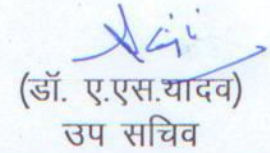 (डॉ. ए.एस.यादव)
उप सचिव